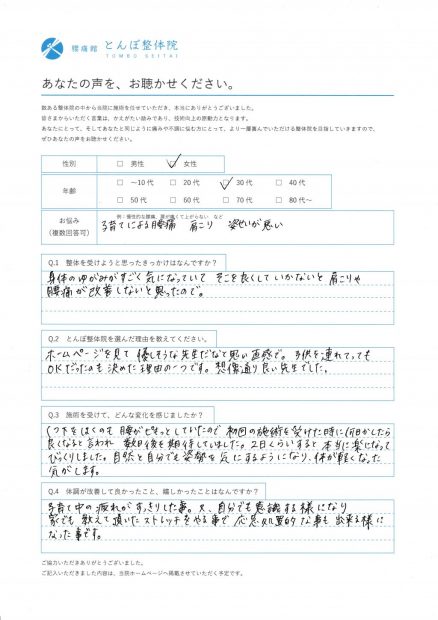 腰痛館 とんぼ整体院
TOMBO SEITAI
あなたの声を、お聴かせください。
数ある整体院の中から当院に施術を任せていただき、本当にありがとうございました。
皆さまからいただく言葉は、かえがたい励みであり、技術向上の原動力となります。
あなたにとって、そしてあなたと同じように痛みや不調に悩む方にとって、より一層喜んでいただける整体院を目指していきますので、
ぜひあなたの声をお聴かせください。
性別 □ 男性 ☑ 女性
年齢 □ ～10代 □ 20代 ☑ 30代 □ 40代
□ 50代 □ 60代 □ 70代 □ 80代～
お悩み
(複数回答可)
例：慢性的な腰痛、肩が痛くて上がらない など
子育てによる腰痛 肩こり 姿せいが悪い
Q.1 整体を受けようと思ったきっかけはなんですか？
身体のゆがみがすごく気になっていて そこを良くしていかないと 肩こりや
腰痛が改善しないと思ったので。
Q.2 とんぼ整体院を選んだ理由を教えてください。
ホームページを見て 優しそうな先生だなと思い直感で。子供を連れてっても
OKだったのも決めた理由の一つです。想像通り良い先生でした。
Q.3 施術を受けて、どんな変化を感じましたか？
くつ下をはくのも腰がピキッとしていたので 初回の施術を受けた時に何日かしたら
良くなると言われ 数日後を期待していました。2日くらいすると 本当に楽になって
びっくりしました。自然と自分でも姿勢を気にするようになり、体が軽くなった
気がします。
Q.4 体調が改善して良かったこと、嬉しかったことはなんですか？
子育て中の疲れがすっきりした事。又、自分でも意識する様になり
家でも教えて頂いたストレッチをやる事で 応急処置的な事も出来る様に
なった事です。
ご協力いただきありがとうございました。
ご記入いただきました内容は、当院ホームページへ掲載させていただく予定です。